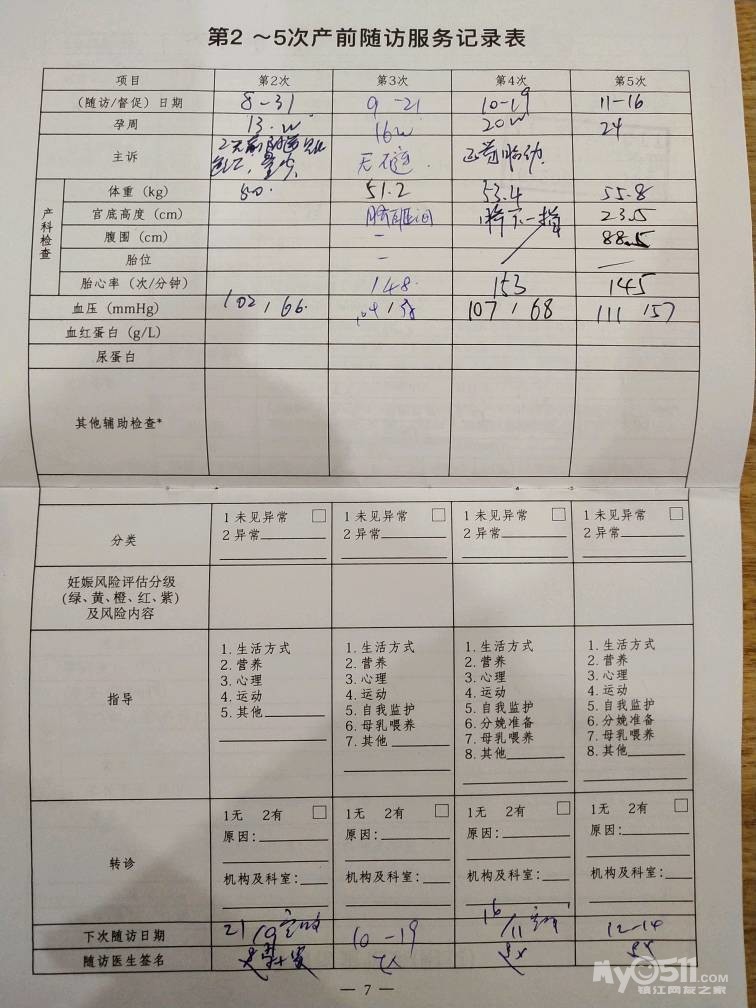 第2～5次产前随访服务记录表
项目 第2次 第3次 第4次 第5次
(随访/督促)日期 8-31 9-21 10-19 11-16
孕周 13.w 16w 20w 24
主诉 无不适.
产科检查
体重(kg) 50. 51.2 53.4 55.8
宫底高度(cm) 23.5
腹围(cm) - 88.5
胎位 -
胎心率(次/分钟) 148. 153 145
血压(mmHg) 102/66. 107/68 111/57
血红蛋白(g/L)
尿蛋白
其他辅助检查*
分类
1 未见异常 □ 1 未见异常 □ 1 未见异常 □ 1 未见异常 □
2 异常 2 异常 2 异常 2 异常
妊娠风险评估分级
(绿、黄、橙、红、紫)
及风险内容
指导
1. 生活方式 1. 生活方式 1. 生活方式 1. 生活方式
2. 营养 2. 营养 2. 营养 2. 营养
3. 心理 3. 心理 3. 心理 3. 心理
4. 运动 4. 运动 4. 运动 4. 运动
5. 其他 5. 自我监护 5. 自我监护 5. 自我监护
6. 母乳喂养 6. 分娩准备 6. 分娩准备
7. 其他 7. 母乳喂养 7. 母乳喂养
8. 其他 8. 其他
转诊
1无 2有 □ 1无 2有 □ 1无 2有 □ 1无 2有 □
原因: 原因: 原因: 原因:
机构及科室: 机构及科室: 机构及科室: 机构及科室:
下次随访日期 21/9 10-19 16/11 12-14
随访医生签名
— 7 —
My0511.com
镇江网友之家